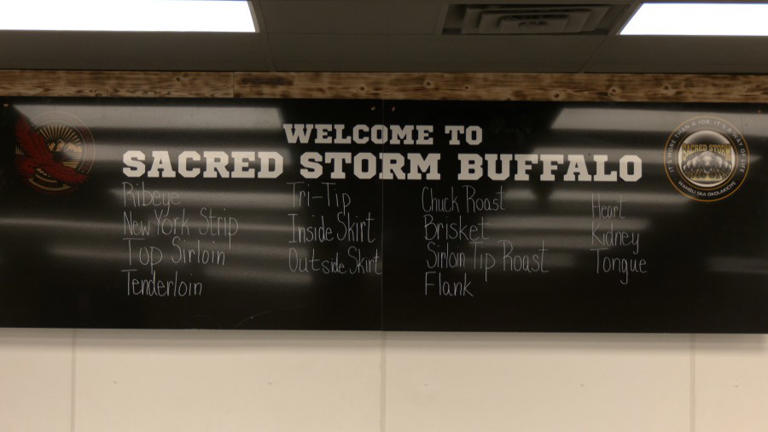 WELCOME TO
SACRED STORM BUFFALO
Ribeye
New York Strip
Top Sirloin
Tenderloin
Tri-Tip
Inside Skirt
Outside Skirt
Chuck Roast
Brisket
Sirloin Tip Roast
Flank
Heart
Kidney
Tongue
SACRED STORM